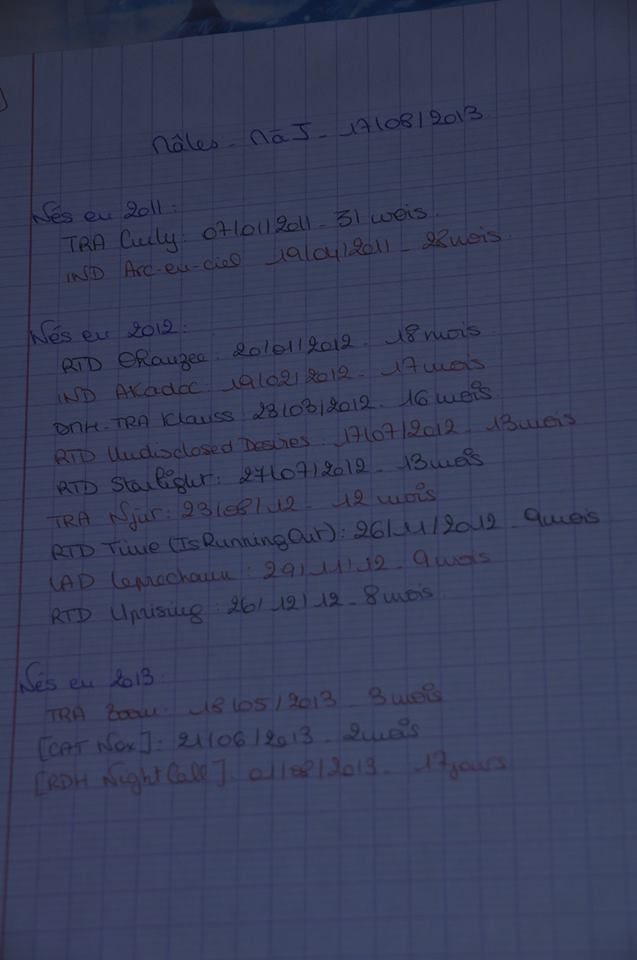 Mâles - MàJ - 17/08/2013
Nés en 2011 :
TRA Curly : 07/01/2011 - 31 mois
IND Arc-en-ciel 19/04/2011 - 28 mois
Nés en 2012 :
RTD 20/01/2012 - 18 mois
IND AKadoc 19/02/2012 - 17 mois
DNH-TRA Klauss : 23/03/2012 - 16 mois
RTD Undisclosed Desires : 17/07/2012 - 13 mois
RTD Starlight : 27/07/2012 - 13 mois
TRA Njur : 23/08/12 - 12 mois
RTD Time (Is Running Out) : 26/11/2012 - 9 mois
LAD Leprechaun : 29/11/12 - 9 mois
RTD Uprising : 26/12/12 - 8 mois
Nés en 2013 :
TRA 18/05/2013 - 3 mois
[CAT Nox] : 21/06/2013 - 2 mois
[RDH NightCall] : 01/08/2013 - 17 jours